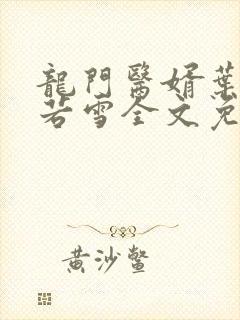 龍門醫婿葉
若雪全文免
黃沙鱉